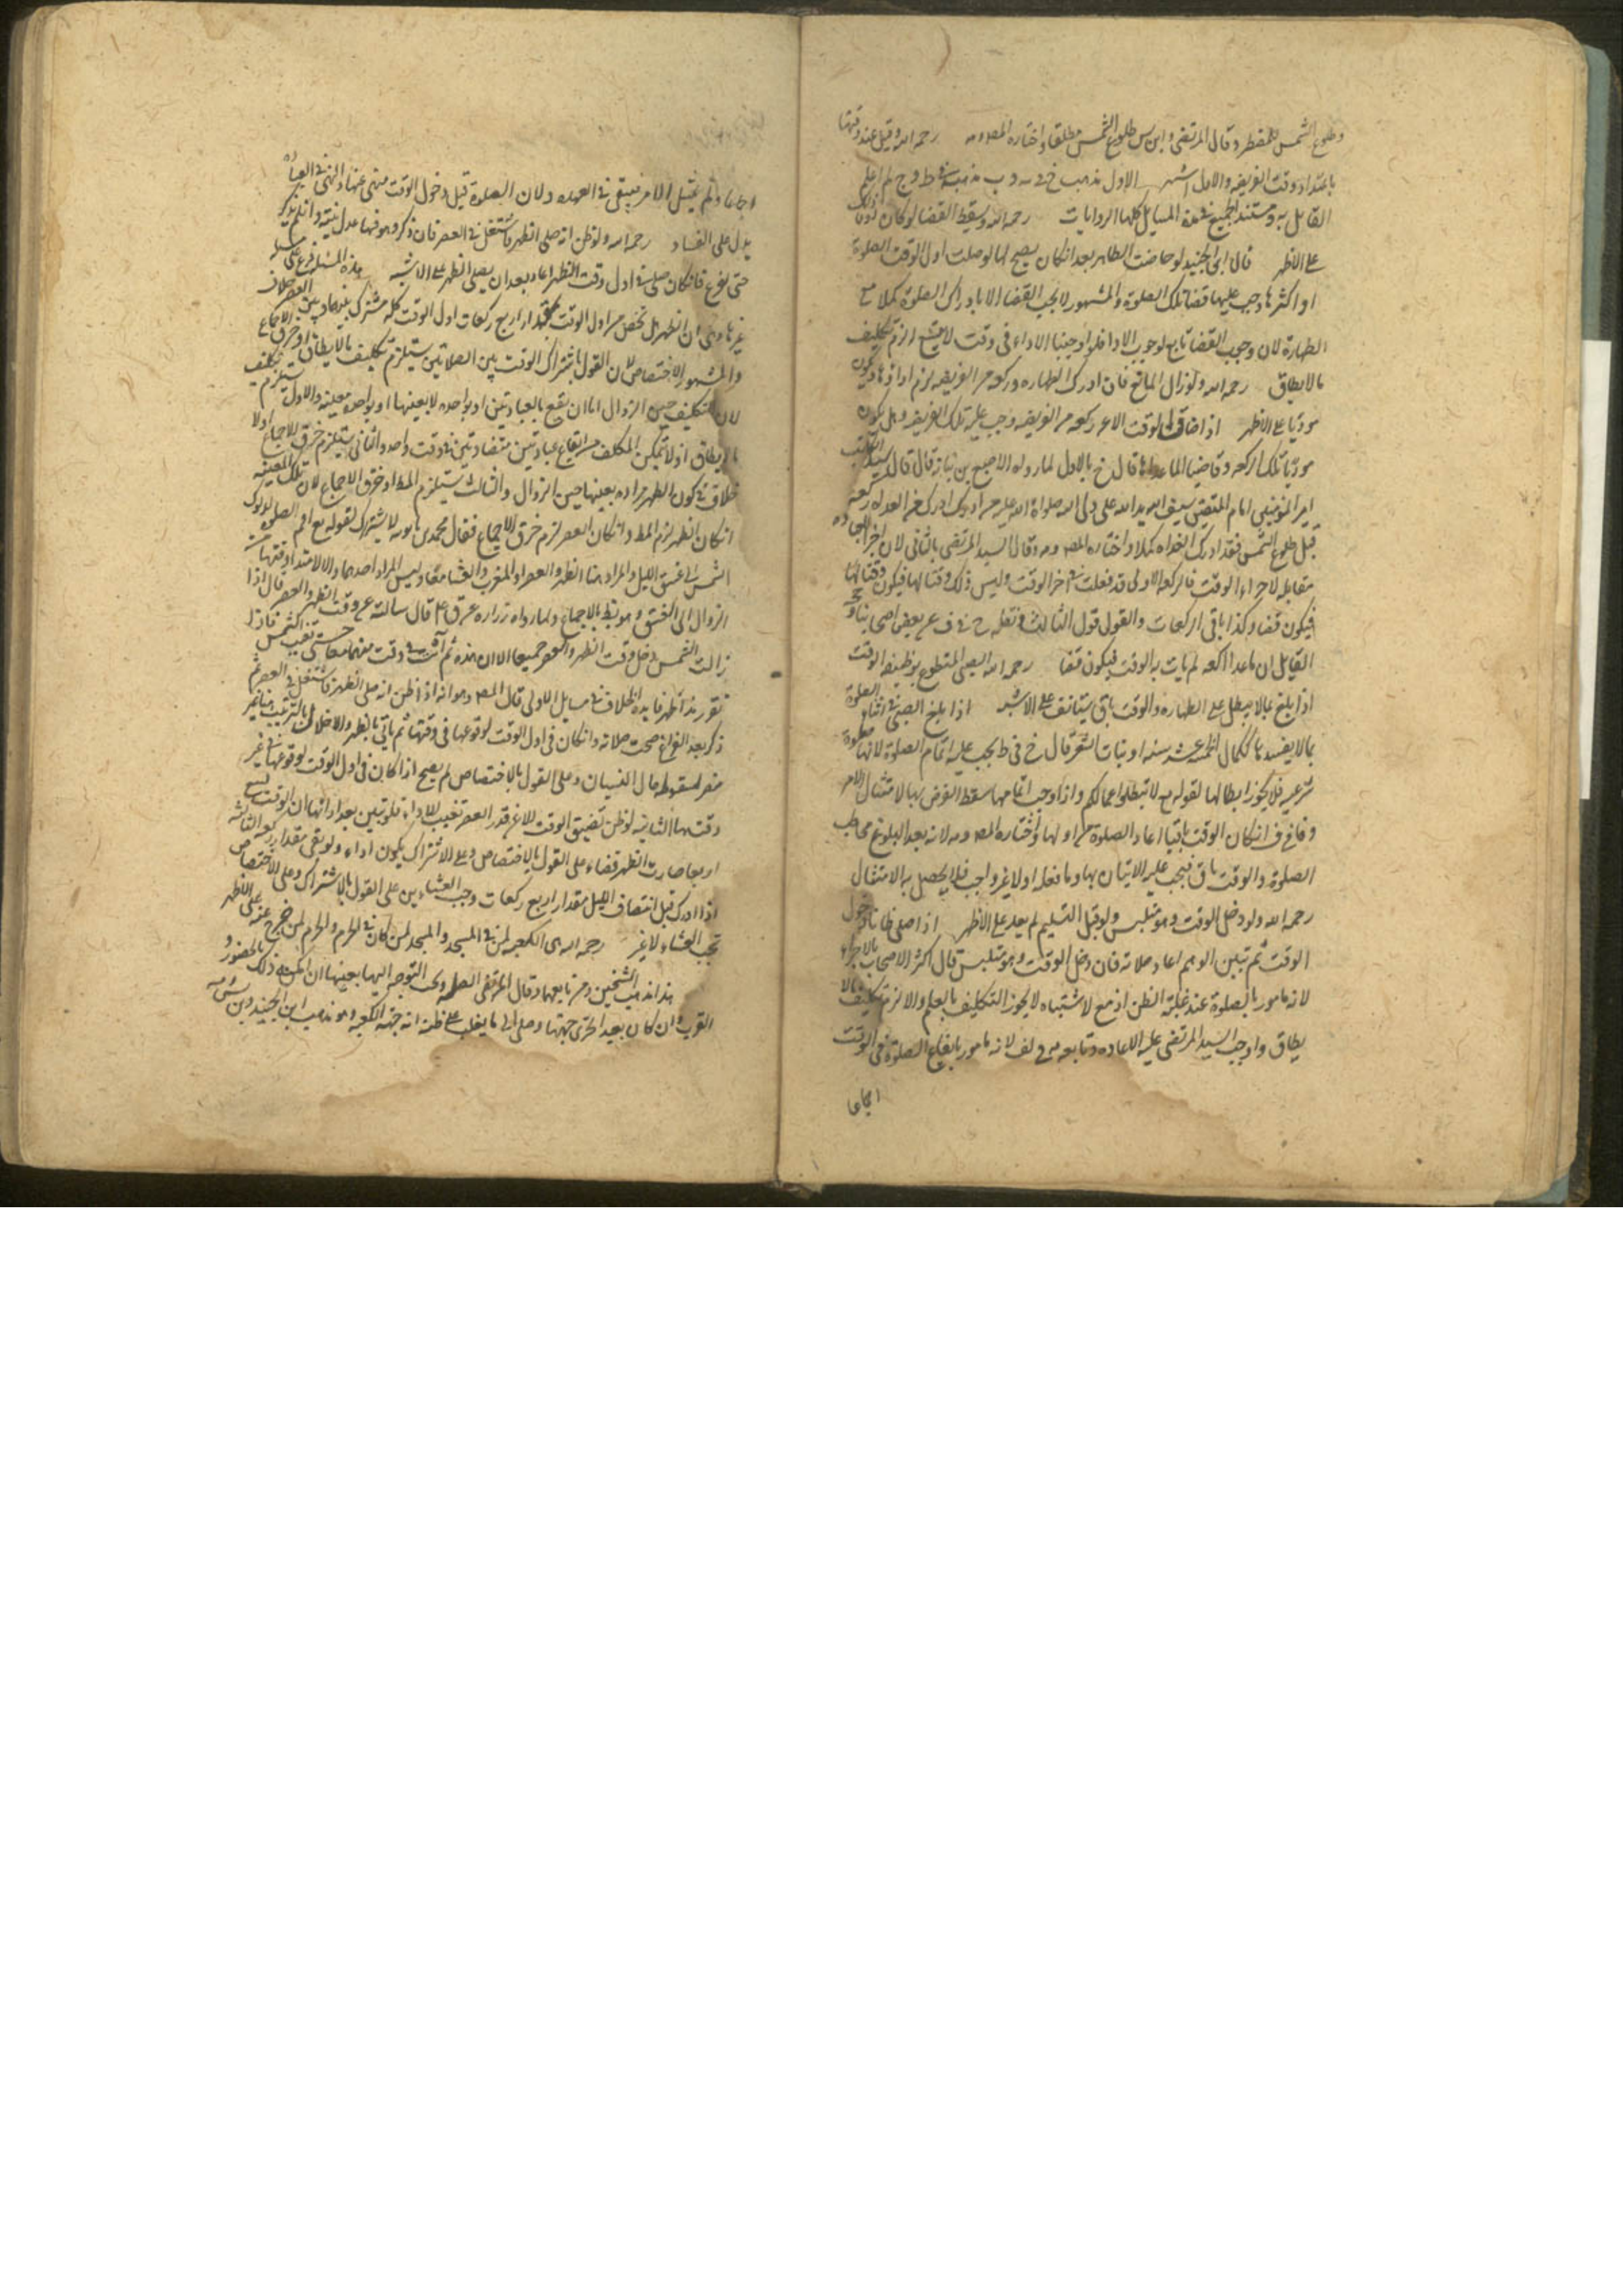 وطلوع الشمس للمضطر وقال المرتضى وابن س طلوع الشمس مطلقا واختاره المصـ رحمه الله وقيل عند وقتها
بامتداد وقت الفريضه والاول اشهر الاول مذهب خ في يه و ب مذهبه في ط و ج لم اعلم
القايل به ومستند الجميع في هذه المسايل كلها الروايات رحمه الله ويسقط القضا لو كان دون ذلك
على الاظهر قال ابن الجنيد لو حاضت الطاهر بعد ان كان يصح لها لو صلت اول الوقت الصلوة
او اكثرها وجب عليها قضا تلك الصلوة والمشهور لا يجب القضا الا بادراك الصلوة كملا مع
الطهارة لان وجوب القضا تابع لوجوب الادا فلو اوجبنا الاداء في وقت لا يتسع لزم تكليف
مالايطاق رحمه الله ولو زال المانع فان ادرك الطهاره وركعه من الفريضه لزم اداؤها ويكون
موديا على الاظهر اذا ضاق الوقت الا عن ركعه من الفريضه وجب عليه تلك الفريضه وهل يكون
موديا تلك الركعه وقاضيا لما عداها قال خ بالاول لما رواه الاصبغ بن نباته قال قال
امير المؤمنين امام المتقين علي ولي الله صلواة الله عليه من ادرك من الغداه ركعه
قبل طلوع الشمس فقد ادرك الغداه كملا واختاره المصـ وقال السيد المرتضى بالثاني لان اجزا العباده
مقابله لاجزاء الوقت فالركعه الاولى قد فعلت في اخر الوقت وليس ذلك وقتا لها فيكون
فيكون قضا وكذا باقي الركعات والقول الثالث نقله خ في ف عن بعض اصحابنا و
القايل ان ما عدا الركعه لم يات به الوقت فيكون قضا رحمه الله الصبي المتطوع بوظيفة الوقت
اذا بلغ بما لا يبطل على الطهاره والوقت باق يستانف على الاشبه اذا بلغ الصبي في اثناء الصلوة
بما لا يفسدها كاكمال خمسة عشر سنه او نبات الشعر قال خ في ط يجب عليه اتمام الصلوة لانها صلوة
شرعيه فلا يجوز ابطالها لقوله تع لا تبطلوا اعمالكم واذا وجب اتمامها سقط الفرض بها لامتثال الامر
وقال في ف ان كان الوقت باقيا اعاد الصلوة من اولها واختاره المصـ لانه بعد البلوغ مخاطب
الصلوة والوقت باق فيجب عليه الاتيان بها وما فعله اولا غير واجب فلا يحصل به الامتثال
رحمه الله ولو دخل الوقت وهو متلبس ولو قبل التسليم لم يعد على الاظهر اذا صلى ظانا دخول
الوقت ثم تبين الوهم اعاد صلاته فان دخل الوقت وهو متلبس قال اكثر الاصحاب بالاجزاء
لانه مامور بالصلوة عند غلبة الظن اذ مع لاشتباه لا يجوز التكليف بالعلم والا لزم تكليف مالا
يطاق واوجب السيد المرتضى عليه الاعاده وتابعه في لف لانه مامور بايقاع الصلوة في الوقت
اجماعا
اجماعا ولم يمتثل الامر فيبقى في العهده ولان الصلوة قبل دخول الوقت منهى عنها والنهى في العباده
يدل على الفساد رحمه الله ولو ظن انه صلى الظهر فاشتغل في العصر فان ذكر وهو فيها عدل بنيته وان لم يذكر
حتى فرغ فان كان صلى في اول وقت الظهر اعاد بعد ان يصلي الظهر على الاشبه هذه المسئله فرع على مسئله
غيرها وهى ان الظهر هل تختص من اول الوقت بمقدار اربع ركعات او اول الوقت كله مشترك بينها وبين العصر خلاف
والمشهور الاختصاص لان القول باشتراك الوقت بين الصلاتين يستلزم تكليف مالايطاق او خرق الاجماع
لان التكليف حين الزوال اما ان يقع بالعبادتين او بواحده لا بعينها او بواحده معينه والاول يستلزم تكليف
مالايطاق اذ لا يتمكن المكلف من ايقاع عبادتين متضادتين في وقت واحد والثاني يستلزم خرق الاجماع اذ لا
خلاف في كون الظهر مراده بعينها حين الزوال والثالث يستلزم المط او خرق الاجماع لان تلك المعينه
ان كان الظهر لزم المط وان كان العصر لزم خرق الاجماع فقال محمد بن بابويه لاشتراك لقوله تع اقم الصلوه لدلوك
الشمس الى غسق الليل والمراد هنا الظهر والعصر او المغرب والعشا معا وليس المراد احدهما والا لامتد وقتها من
الزوال الى الغسق وهو بط بالاجماع ولما رواه زراره عن ق ع قال سالته عن وقت الظهر والعصر قال اذا
زالت الشمس دخل وقت الظهر والعصر جميعا الا ان هذه قبل هذه ثم انت في وقت منهما معا حتى تغيب الشمس فاذا
تقرر هذا ظهر فايده الخلاف في مسايل الاولى قال المصـ وهو انه اذا ظن انه صلى الظهر فاشتغل في العصر ثم
ذكر بعد الفراغ صحت صلاته وان كان في اول الوقت لوقوعها في وقتها ثم ياتي بالظهر والاخلال بالترتيب هنا غير
مضر لسقوطه حال النسيان وعلى القول بالاختصاص لم يصح اذا كان في اول الوقت لوقوعها في غير
وقتها الثانيه لو ظن تضييق الوقت الا عن قدر العصر تعينت للاداء فلو تبين بعد ادائها ان الوقت يسع
اربعا صارت الظهر قضاء على القول بالاختصاص وعلى الاشتراك يكون اداء ولو بقى مقدار ركعه الثالثه
اذا ادرك قبل انتصاف الليل مقدار اربع ركعات وجب العشاءين على القول بالاشتراك وعلى الاختصاص
تجب العشاء لاغير رحمه الله هى الكعبه لمن في المسجد والمسجد لمن كان في الحرم والحرم لمن خرج عنه على الاظهر
هذا مذهب الشيخين ومن تابعهما وقال المرتضى القبله الكعبه ويجب التوجه اليها بعينها ان امكنه ذلك بالحضور و
القرب وان كان بعيد تحرى جهتها وصلى الى ما يغلب على ظنه انه جهة الكعبه وهو مذهب ابن الجنيد وبن س